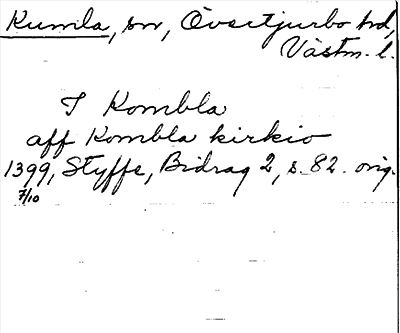 Kumla, sn, Övertjurbo hd,
Västm. l.
I Kombla
aff Kombla kirkio
1399, Styffe, Bidrag 2, s. 82. orig.
7/10